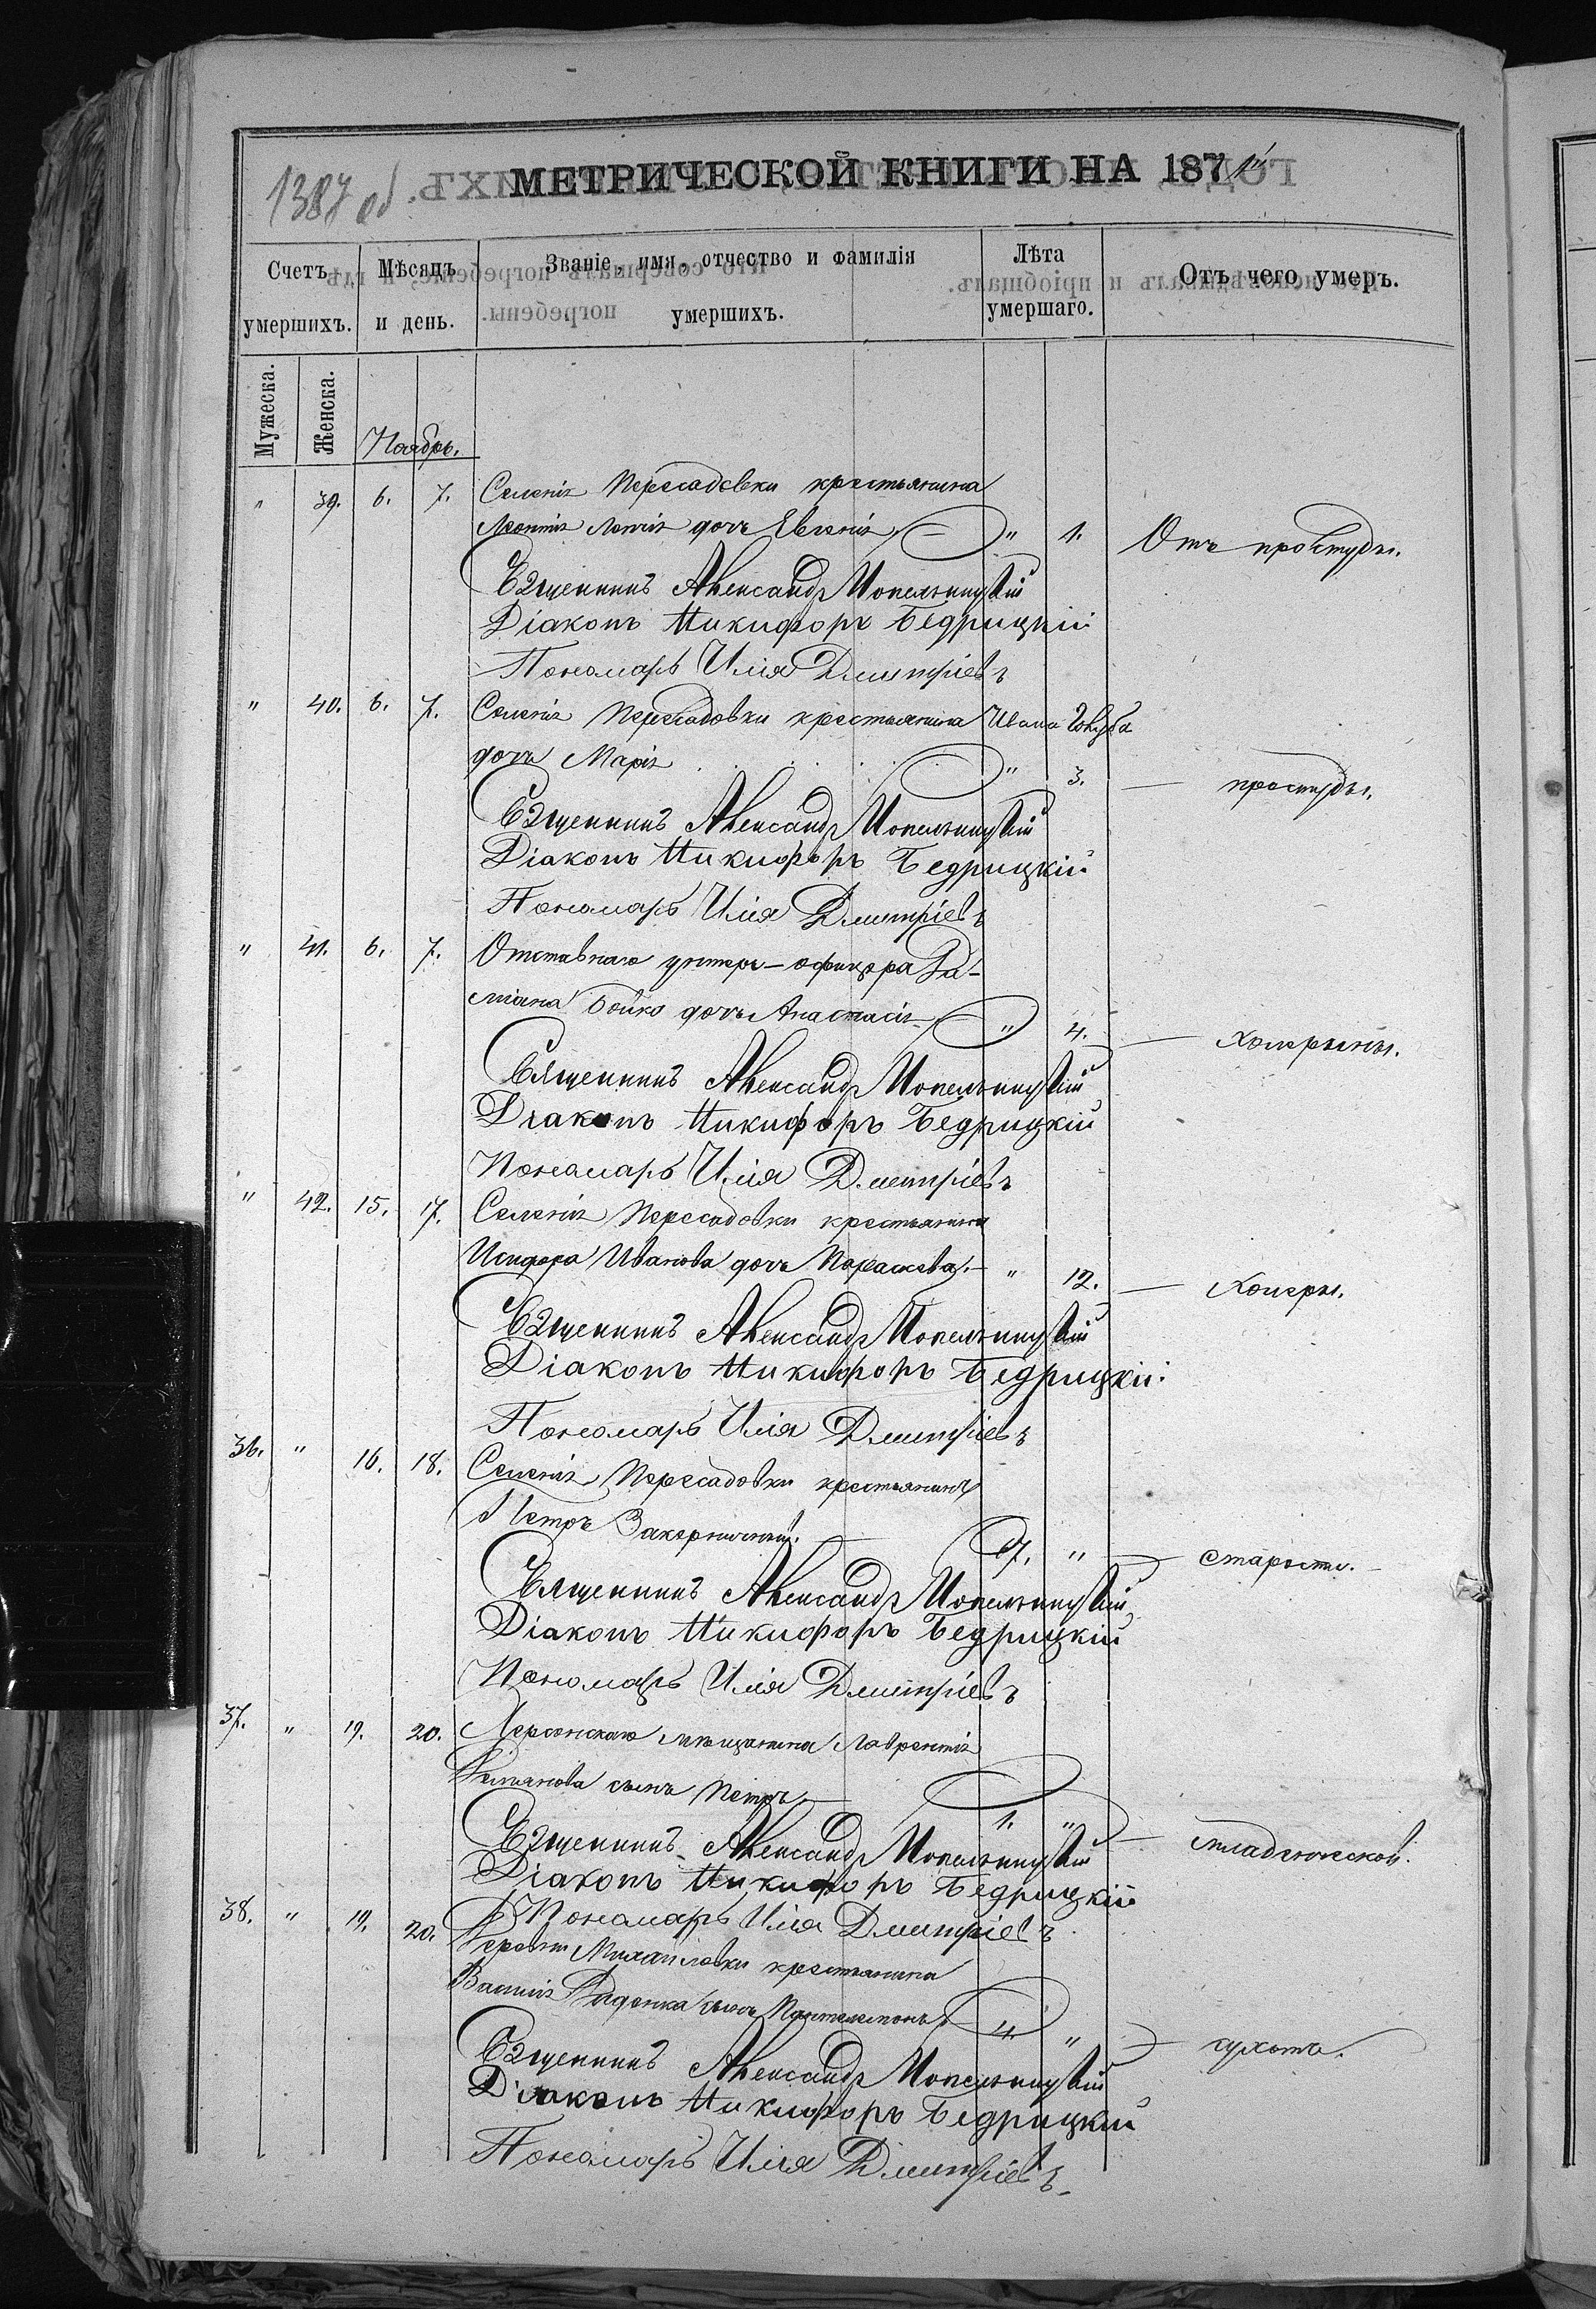 1387 об.
МЕТРИЧЕСКОЙ КНИГИ НА 187
Счетъ умершихъ.
Мѣсяцъ и день.
Званіе, имя, отчество и фамилія умершихъ.
Лѣта умершаго.
Отъ чего умеръ.
Мужеска.
Женска.
Ноябрь.
" 39. 6. 7. Селенія Пересадовки крестьянина
Леонтія дочь Евгенія " 1. Отъ простуды.
Священникъ Александръ
Діаконъ Никифоръ Бедрицкій
Пономарь Илія Дмитріевъ
" 40. 6. 7. Селенія Пересадовки крестьянина Ивана
дочь Марія " 3. — простуды.
Священникъ Александръ
Діаконъ Никифоръ Бедрицкій
Пономарь Илія Дмитріевъ
" 41. 6. 7. Отставнаго унтеръ-офицера Да-
міана Бойко дочь Анастасія " 4. — холерыны.
Священникъ Александръ
Діаконъ Никифоръ Бедрицкій
Пономарь Илія Дмитріевъ
" 42. 15. 17. Селенія Пересадовки крестьянина
Исидора Иванова дочь Параскева. " 12. — Холеры.
Священникъ Александръ
Діаконъ Никифоръ Бедрицкій
Пономарь Илія Дмитріевъ
36. " 16. 18. Селенія Пересадовки крестьянинъ
Петръ " — старости.
Священникъ Александръ
Діаконъ Никифоръ Бедрицкій
Пономарь Илія Дмитріевъ
37. " 19. 20. Херсонскаго мѣщанина Лаврентія
сынъ Петръ. 1. " — младенческой.
Священникъ Александръ
Діаконъ Никифоръ Бедрицкій
Пономарь Илія Дмитріевъ
38. " 19. 20. Деревни Михайловки крестьянина
Василія сынъ Пантелеимонъ 4. " — сухотъ.
Священникъ Александръ
Діаконъ Никифоръ Бедрицкій
Пономарь Илія Дмитріевъ